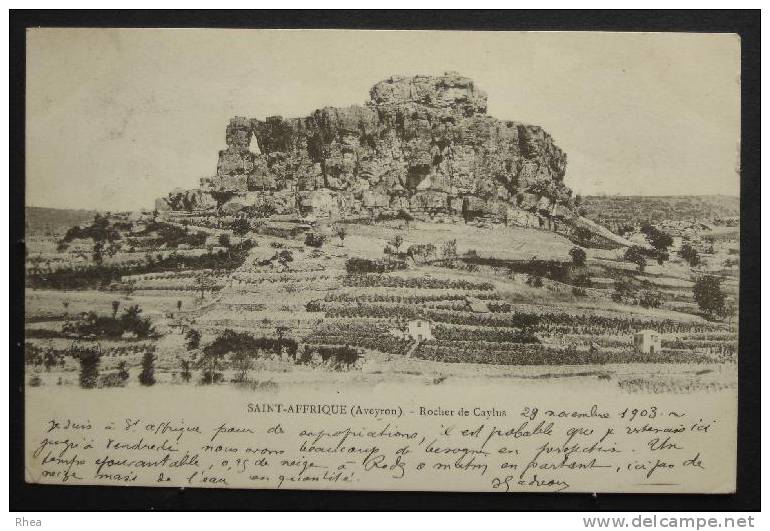 SAINT-AFFRIQUE (Aveyron) - Rocher de Caylus 29 novembre 1903.
Je suis à St affrique pour de expropriations, il est probable que je resterais ici
jusqu'à vendredi nous avons beaucoup de besogne en projection. Un
temps épouvantable, 0,25 de neige à Rodez ce matin en partant, ici pas de
neige mais de l'eau en quantité.
Rhea
www.delcampe.net